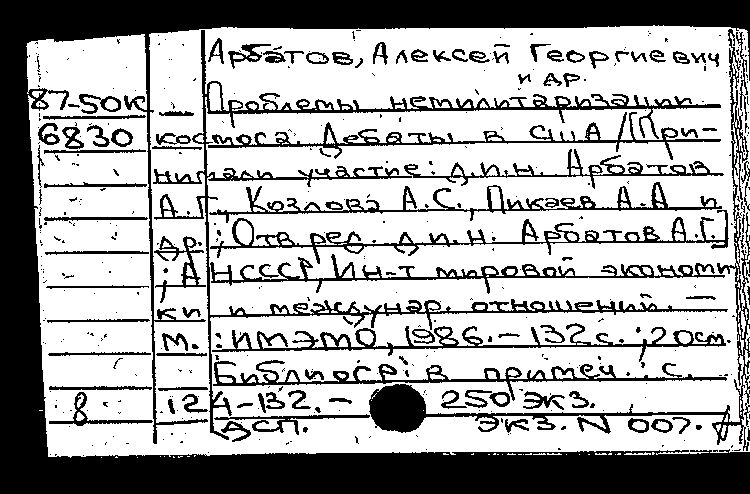 Арбатов, Алексей Георгиевич
и др.
87-50к Проблемы немилитаризации
6830 космоса. Дебаты в США / [При-
нимали участие: д.и.н. Арбатов
А.Г., Козлова А.С., Пикаев А.А и
др.; Отв ред. д и.н. Арбатов А.Г.]
; АН СССР, Ин-т мировой экономи
ки и междунар. отношений. —
М. : ИМЭМО, 1986. — 132 с. ; 20 см.
Библиогр: в примеч.: с.
8 124-132. — 250 экз.
ДСП. Экз. N 007.